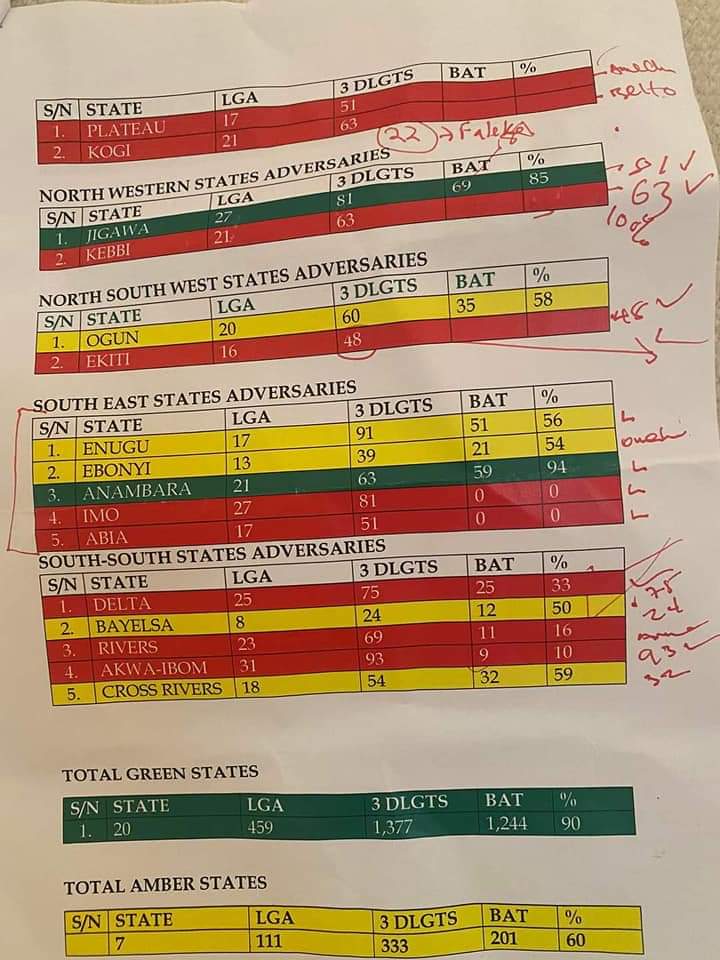 S/N STATE LGA 3 DLGTS BAT %
1. PLATEAU 17 51
2. KOGI 21 63
22 → Faleke
NORTH WESTERN STATES ADVERSARIES
S/N STATE LGA 3 DLGTS BAT %
1. JIGAWA 27 81 69 85 81 ✓
2. KEBBI 21 63 63 ✓
NORTH SOUTH WEST STATES ADVERSARIES
S/N STATE LGA 3 DLGTS BAT %
1. OGUN 20 60 35 58
2. EKITI 16 48 48 ✓
SOUTH EAST STATES ADVERSARIES
S/N STATE LGA 3 DLGTS BAT %
1. ENUGU 17 91 51 56
2. EBONYI 13 39 21 54
3. ANAMBARA 21 63 59 94
4. IMO 27 81 0 0
5. ABIA 17 51 0 0
SOUTH-SOUTH STATES ADVERSARIES
S/N STATE LGA 3 DLGTS BAT %
1. DELTA 25 75 25 33 75
2. BAYELSA 8 24 12 50 24
3. RIVERS 23 69 11 16
4. AKWA-IBOM 31 93 9 10 93 ✓
5. CROSS RIVERS 18 54 32 59 32
TOTAL GREEN STATES
S/N STATE LGA 3 DLGTS BAT %
1. 20 459 1,377 1,244 90
TOTAL AMBER STATES
S/N STATE LGA 3 DLGTS BAT %
7 111 333 201 60